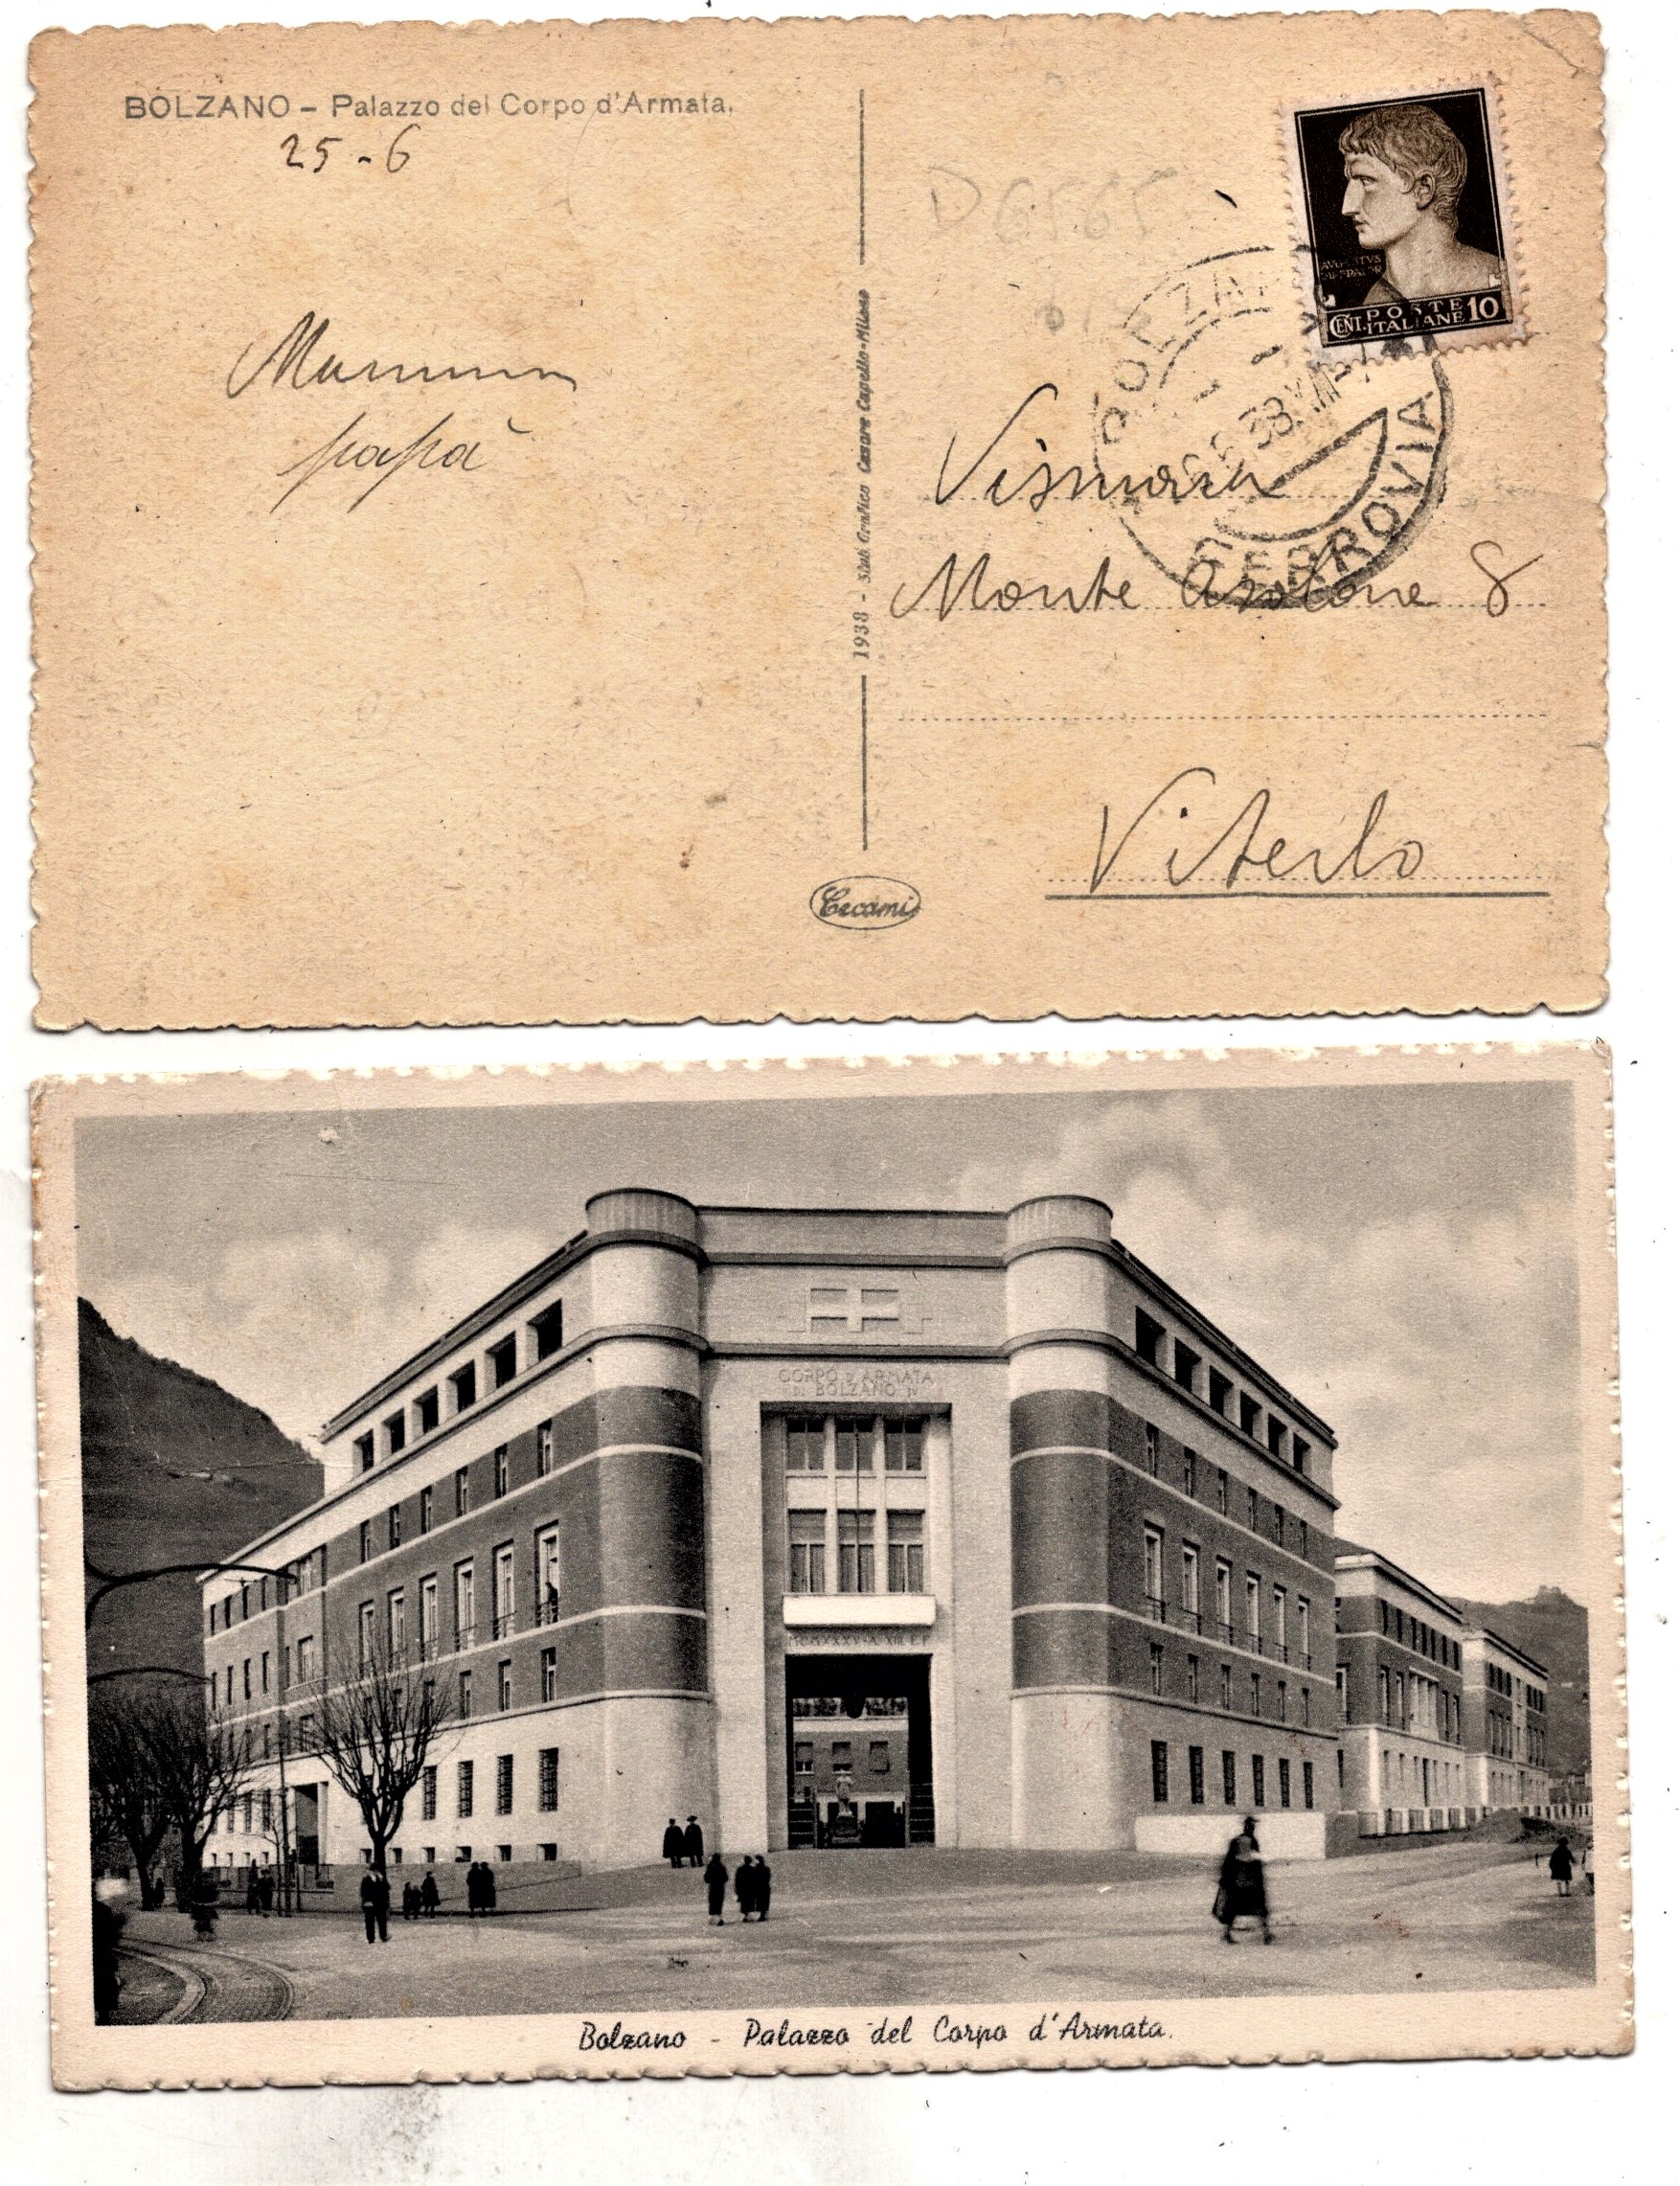 BOLZANO – Palazzo del Corpo d'Armata.
25-6
Mammina
papà
1938 - Stab Grafico Cesare Capello-Milano
Cecami
D6565
AVGVSTVS
IMPERATOR
POSTE
CENT. ITALIANE 10
BOLZANO
38.XVI
FERROVIA
Vismara
Monte Asolone 8
Viterbo
CORPO D'ARMATA
DI BOLZANO IV
MCMXXXV-A XIII E.F.
Bolzano - Palazzo del Corpo d'Armata.